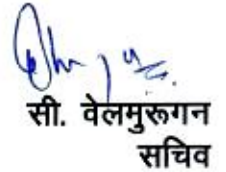 सी. वेलमुरूगन
सचिव